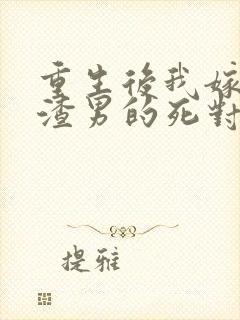 重生後我嫁
渣男的死對
提雅